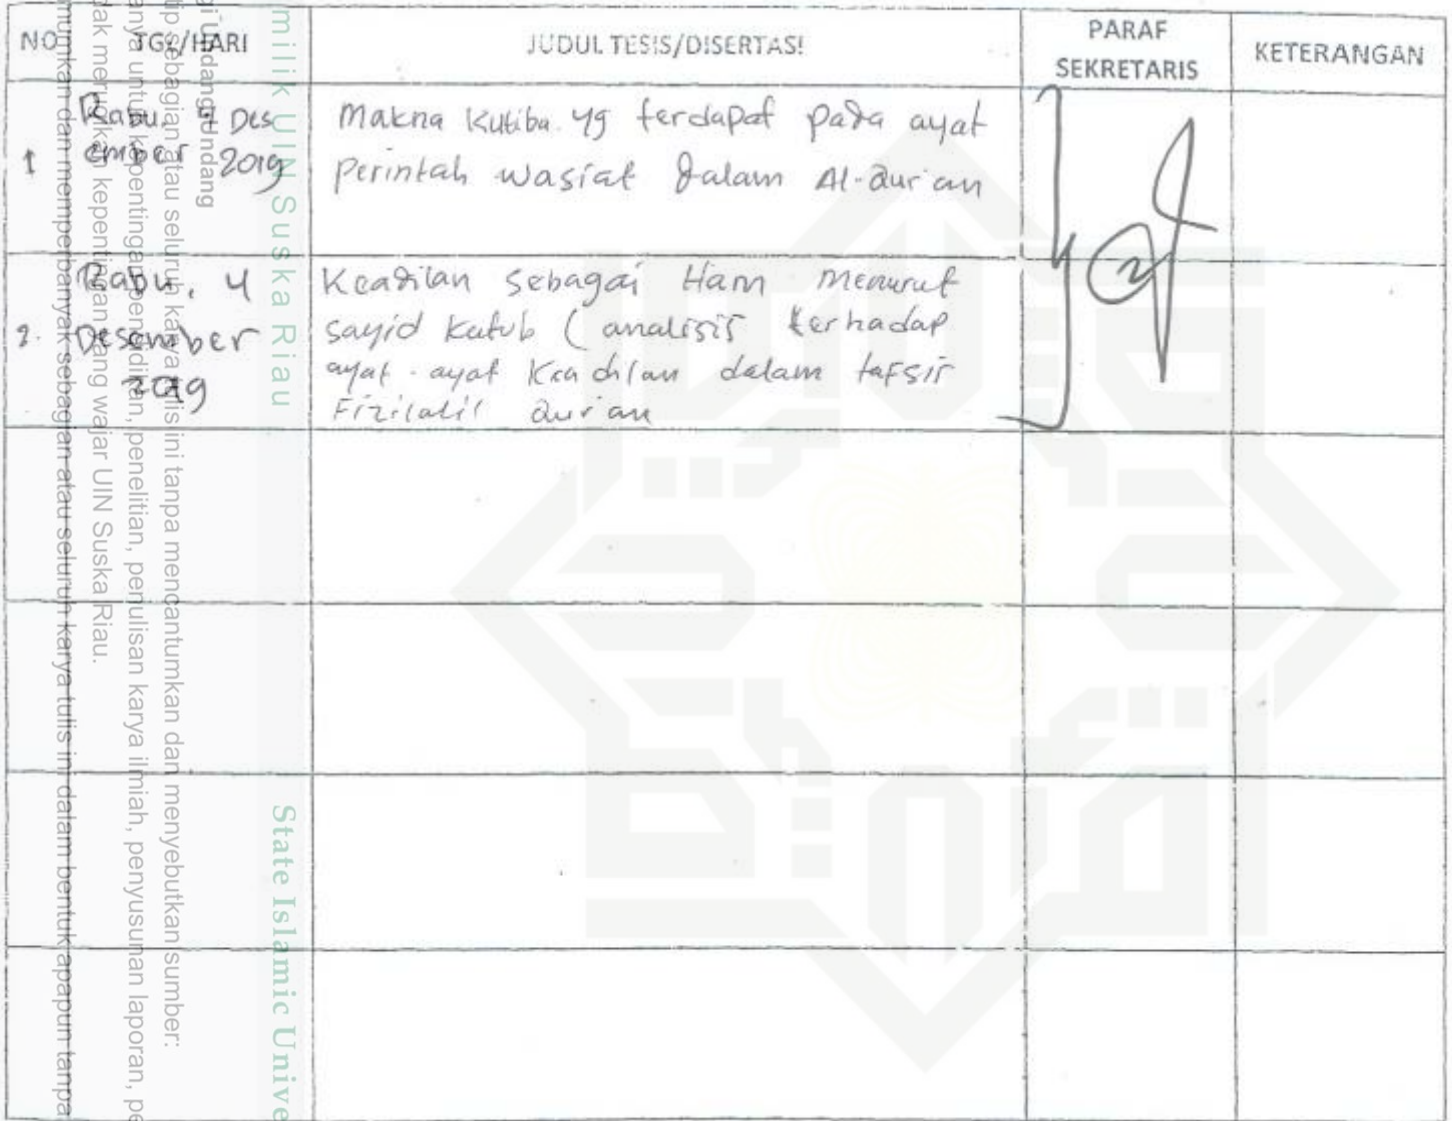 NO
TGL/HARI
JUDUL TESIS/DISERTASI
PARAF
SEKRETARIS
KETERANGAN
1
Rabu, 4 Des
ember 2019
Makna Kutiba yg terdapat pada ayat
Perintah wasiat dalam Al-Qur'an
2.
Rabu, 4
Desember
2019
Keadilan sebagai Ham menurut
sayid Kutub (analisis terhadap
ayat-ayat Keadilan dalam tafsir
Fizilalil Qur'an
milik UIN Suska Riau
State Islamic Unive
gi Undang-Undang
tip sebagian atau seluruh karya tulis ini tanpa mencantumkan dan menyebutkan sumber:
anya untuk kepentingan pendidikan, penelitian, penulisan karya ilmiah, penyusunan laporan, pe
dak merugikan kepentingan yang wajar UIN Suska Riau.
mumkan dan memperbanyak sebagian atau seluruh karya tulis ini dalam bentuk apapun tanpa